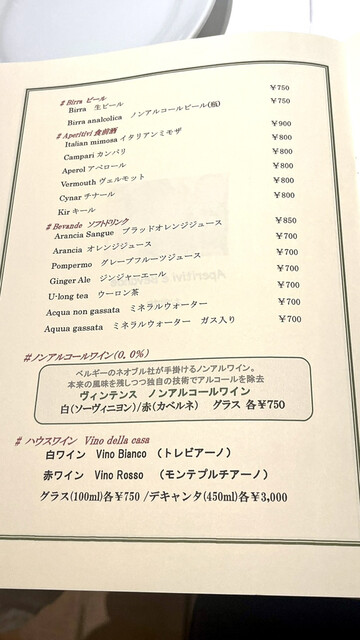 # Birra ビール
Birra 生ビール ¥750
Birra analcolica ノンアルコールビール(瓶) ¥750
# Aperitivi 食前酒
Italian mimosa イタリアンミモザ ¥900
Campari カンパリ ¥800
Aperol アペロール ¥800
Vermouth ヴェルモット ¥800
Cynar チナール ¥800
Kir キール ¥800
# Bevande ソフトドリンク
Arancia Sangue ブラッドオレンジジュース ¥850
Arancia オレンジジュース ¥700
Pompermo グレープフルーツジュース ¥700
Ginger Ale ジンジャーエール ¥700
U-long tea ウーロン茶 ¥700
Acqua non gassata ミネラルウォーター ¥700
Aquua gassata ミネラルウォーター ガス入り ¥700
#ノンアルコールワイン(0,0%)
ベルギーのネオブル社が手掛けるノンアルワイン。
本来の風味を残しつつ独自の技術でアルコールを除去
ヴィンテンス ノンアルコールワイン
白(ソーヴィニヨン)/赤(カベルネ) グラス 各¥750
# ハウスワイン Vino della casa
白ワイン Vino Bianco (トレビアーノ)
赤ワイン Vino Rosso (モンテプルチアーノ)
グラス(100ml)各¥750 /デキャンタ(450ml)各¥3,000